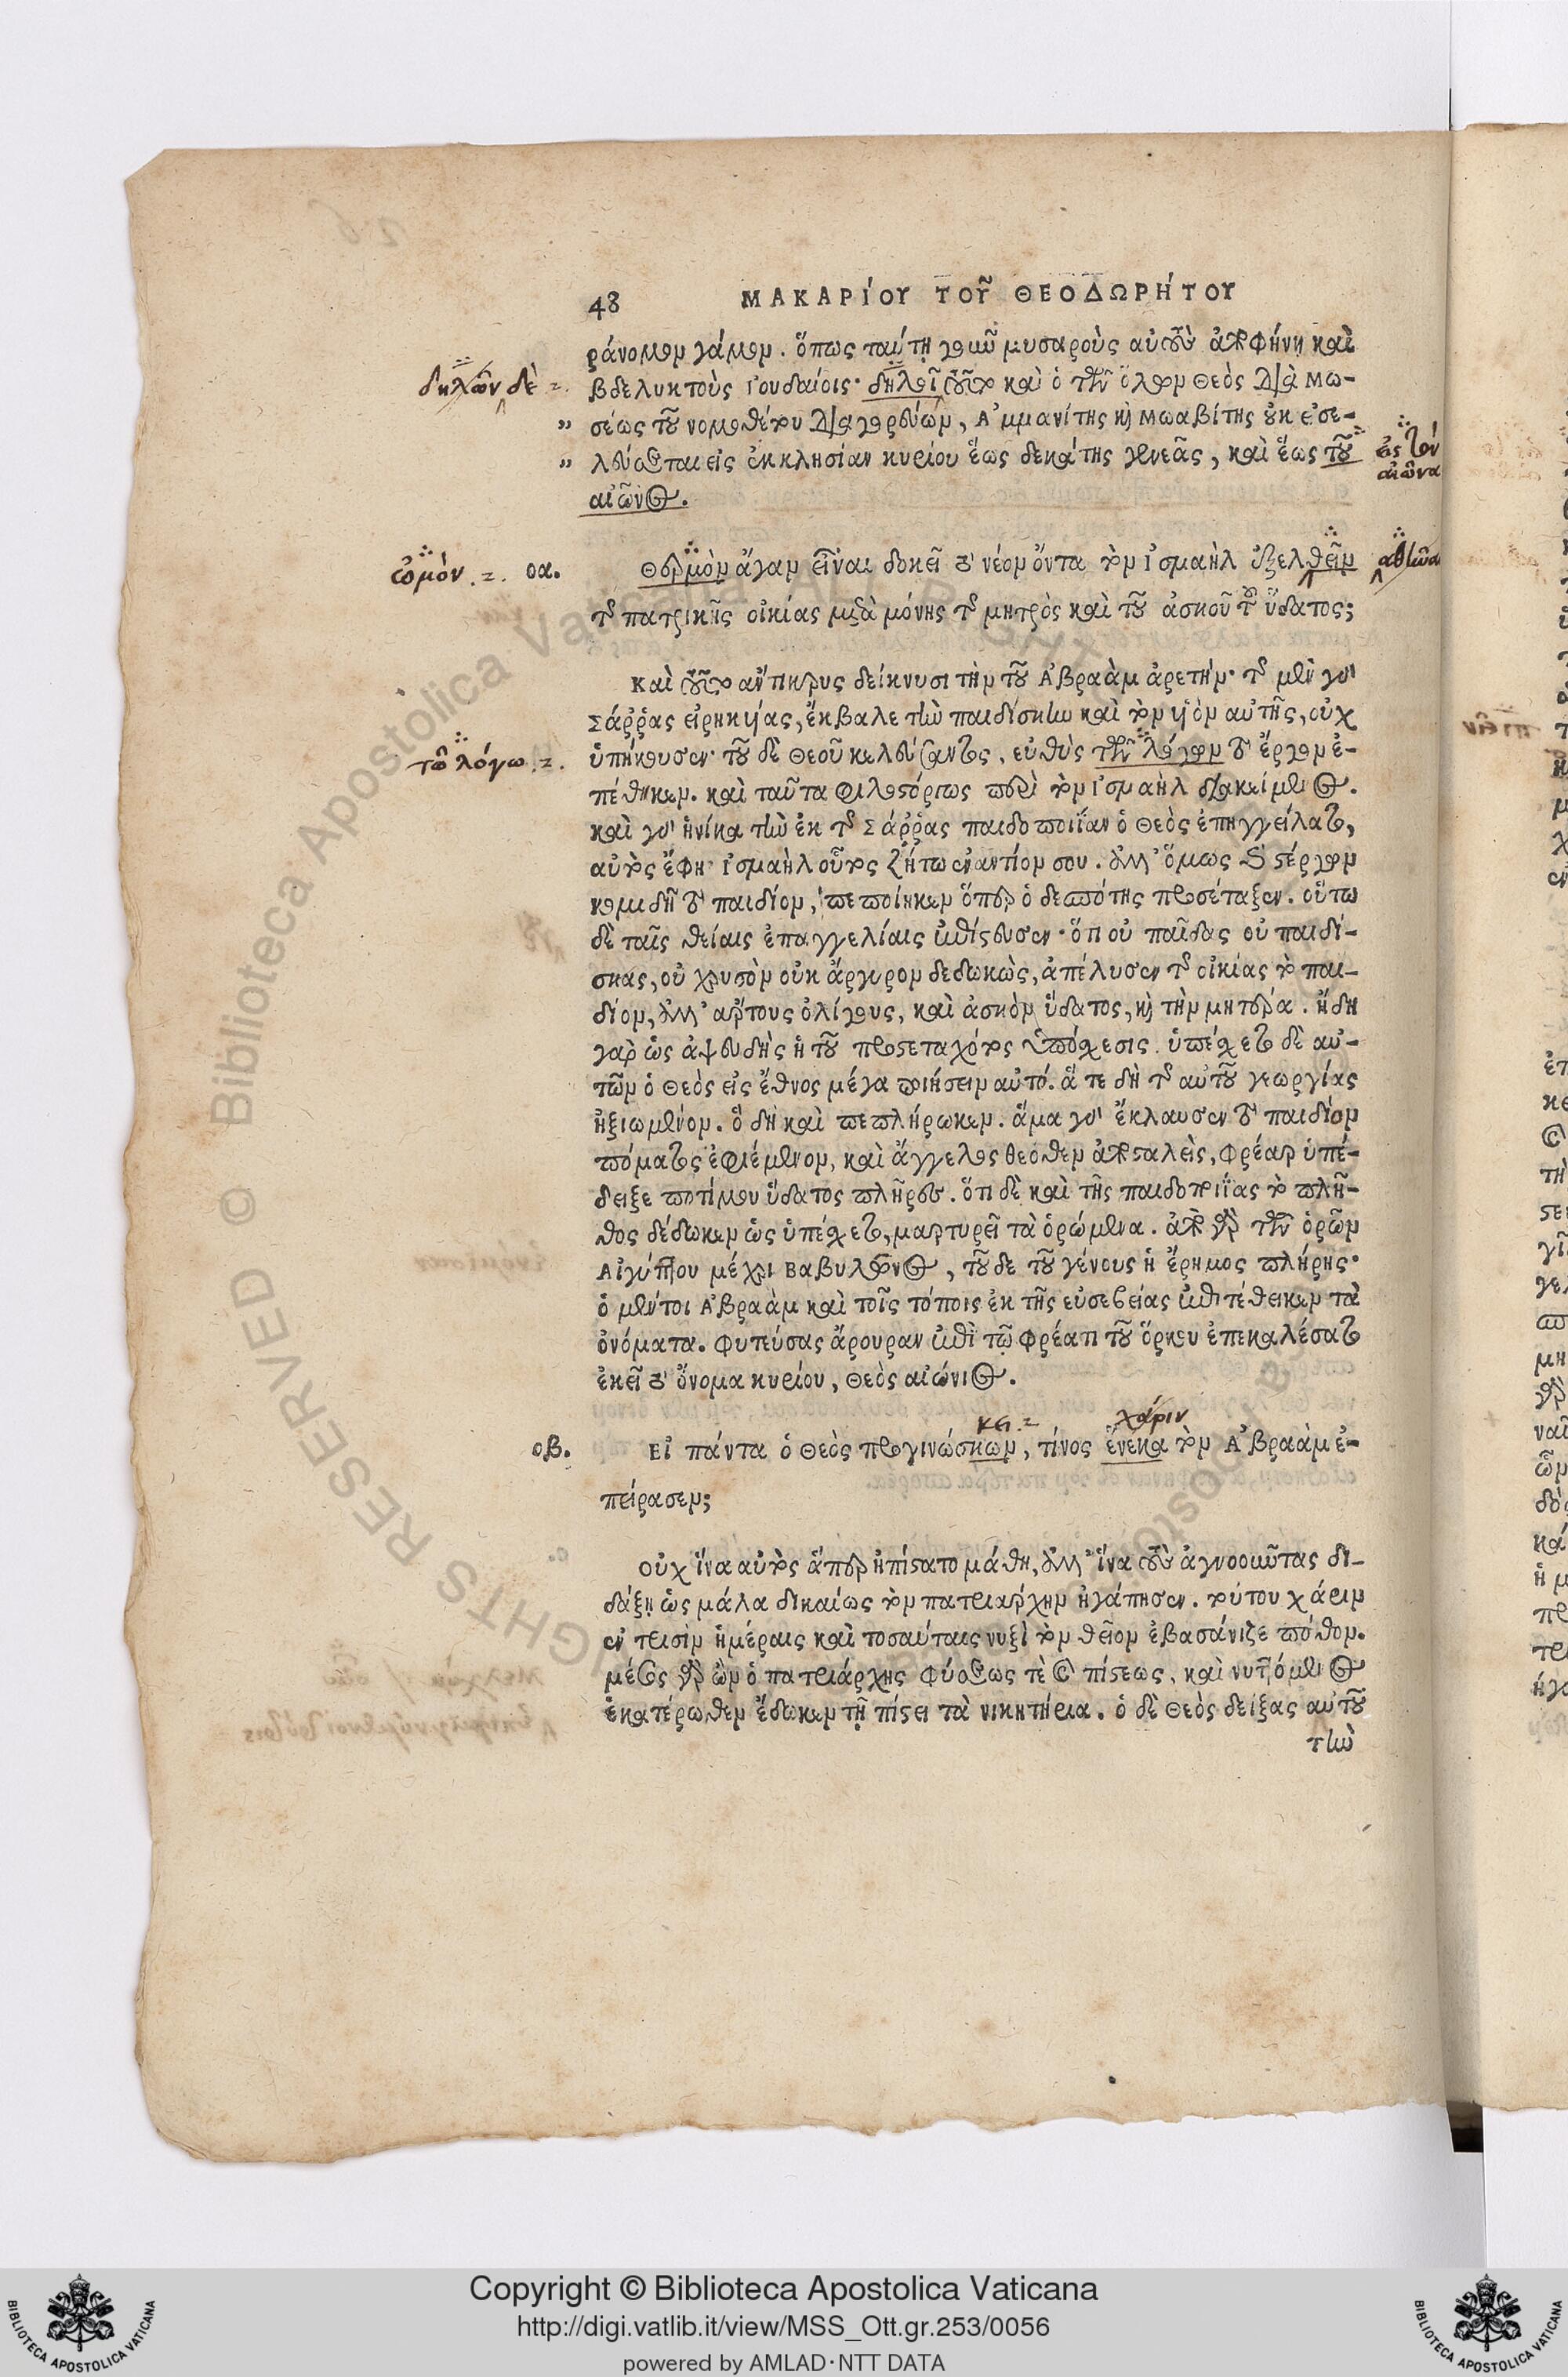 48 ΜΑΚΑΡίΟΥ ΤΟΥ͂ ΘΕΟΔΩΡΉΤΟΥ
ράνομον γάμον. ὅπως ταύτῃ γοῦν μυσαροὺς αὐτοὺς ἀποφήνῃ καὶ
δηλῶν δὲ
βδελυκτοὺς Ἰουδαίοις· δηλοῖ τοῦτο καὶ ὁ τῶν ὅλων Θεὸς διὰ Μω-
„ σέως τοῦ νομοθέτου διαγορεύων, Ἀμμανίτης καὶ Μωαβίτης οὐκ εἰσε-
„ λεύσεται εἰς ἐκκλησίαν κυρίου ἕως δεκάτης γενεᾶς, καὶ ἕως τοῦ
εἰς τὸν
αἰῶνα
αἰῶνος.
ὠμόν. οα. Θερμὸν ἄγαν εἶναι δοκεῖ τὸ νέον ὄντα τὸν Ἰσμαὴλ ἐξελθεῖν
τῆς πατρικῆς οἰκίας μετὰ μόνης τῆς μητρὸς καὶ τοῦ ἀσκοῦ τοῦ ὕδατος;
Καὶ τοῦτο ἄντικρυς δείκνυσι τὴν τοῦ Ἀβραὰμ ἀρετήν· τῆς μὲν γὰρ
Σάῤῥας εἰρηκυίας, ἔκβαλε τὴν παιδίσκην καὶ τὸν υἱὸν αὐτῆς, οὐχ
τῶ λόγω.
ὑπήκουσεν· τοῦ δὲ Θεοῦ κελεύσαντος, εὐθὺς τῶν λόγων τὸ ἔργον ἐ-
πέθηκεν. καὶ ταῦτα φιλοστόργως περὶ τὸν Ἰσμαὴλ διακείμενος.
καὶ γὰρ ἡνίκα τὴν ἐκ τῆς Σάῤῥας παιδοποιΐαν ὁ Θεὸς ἐπηγγείλατο,
αὐτὸς ἔφη· Ἰσμαὴλ οὗτος ζήτω ἐναντίον σου. ἀλλ' ὅμως ὁ στέργων
κομιδῇ τὸ παιδίον, πεποίηκεν ὅπερ ὁ δεσπότης προσέταξεν. οὕτω
δὲ ταῖς θείαις ἐπαγγελίαις ἐπίστευσεν· ὅτι οὐ παῖδας οὐ παιδί-
σκας, οὐ χρυσὸν οὐκ ἄργυρον δεδωκὼς, ἀπέλυσεν τῆς οἰκίας τὸ παι-
δίον, ἀλλ' ἄρτους ὀλίγους, καὶ ἀσκὸν ὕδατος, καὶ τὴν μητέρα. ᾔδη
γὰρ ὡς ἀψευδὴς ἡ τοῦ προστεταχότος ὑπόσχεσις. ὑπέσχετο δὲ αὐ-
τῶν ὁ Θεὸς εἰς ἔθνος μέγα ποιήσειν αὐτό. ἅ τε δὴ τῆς αὐτοῦ γεωργίας
ἠξιωμένον. ὃ δὴ καὶ πεπλήρωκεν. ἅμα γὰρ ἔκλαυσεν τὸ παιδίον
πόματος ἐφιέμενον, καὶ ἄγγελος θεόθεν ἀποσταλεὶς, φρέαρ ὑπέ-
δειξε ποτίμου ὕδατος πλῆρες. ὅτι δὲ καὶ τῆς παιδοποιΐας τὸ πλῆ-
θος δέδωκεν ὡς ὑπέσχετο, μαρτυρεῖ τὰ ὁρώμενα. ἀπὸ γὰρ τῶν ὁρῶν
Αἰγύπτου μέχρι Βαβυλῶνος, τοῦδε τοῦ γένους ἡ ἔρημος πλήρης·
ὁ μέντοι Ἀβραὰμ καὶ τοῖς τόποις ἐκ τῆς εὐσεβείας ἐπιτέθεικεν τὰ
ὀνόματα. φυτεύσας ἄρουραν ἐπὶ τῷ φρέατι τοῦ ὅρκου ἐπεκαλέσατο
ἐκεῖ τὸ ὄνομα κυρίου, Θεὸς αἰώνιος.
κει. χάριν
οβ. Εἰ πάντα ὁ Θεὸς προγινώσκων, τίνος ἕνεκα τὸν Ἀβραὰμ ἐ-
πείρασεν;
Οὐχ ἵνα αὐτὸς ἅπερ ἠπίστατο μάθῃ, ἀλλ' ἵνα τοὺς ἀγνοοῦντας δι-
δάξῃ ὡς μάλα δικαίως τὸν πατριάρχην ἠγάπησεν. τούτου χάριν
ἐν τρισὶν ἡμέραις καὶ τοσαύταις νυξὶ τὸν θεῖον ἐβασάνιζε πόθον.
μέσος γὰρ ὢν ὁ πατριάρχης φύσεως τὲ καὶ πίστεως, καὶ νυττόμενος
ἑκατέρωθεν ἔδωκεν τῇ πίστει τὰ νικητήρια. ὁ δὲ Θεὸς δείξας αὐτοῦ
τὴν
Copyright © Biblioteca Apostolica Vaticana
http://digi.vatlib.it/view/MSS_Ott.gr.253/0056
powered by AMLAD·NTT DATA
BIBLIOTECA APOSTOLICA VATICANA
BIBLIOTECA APOSTOLICA VATICANA